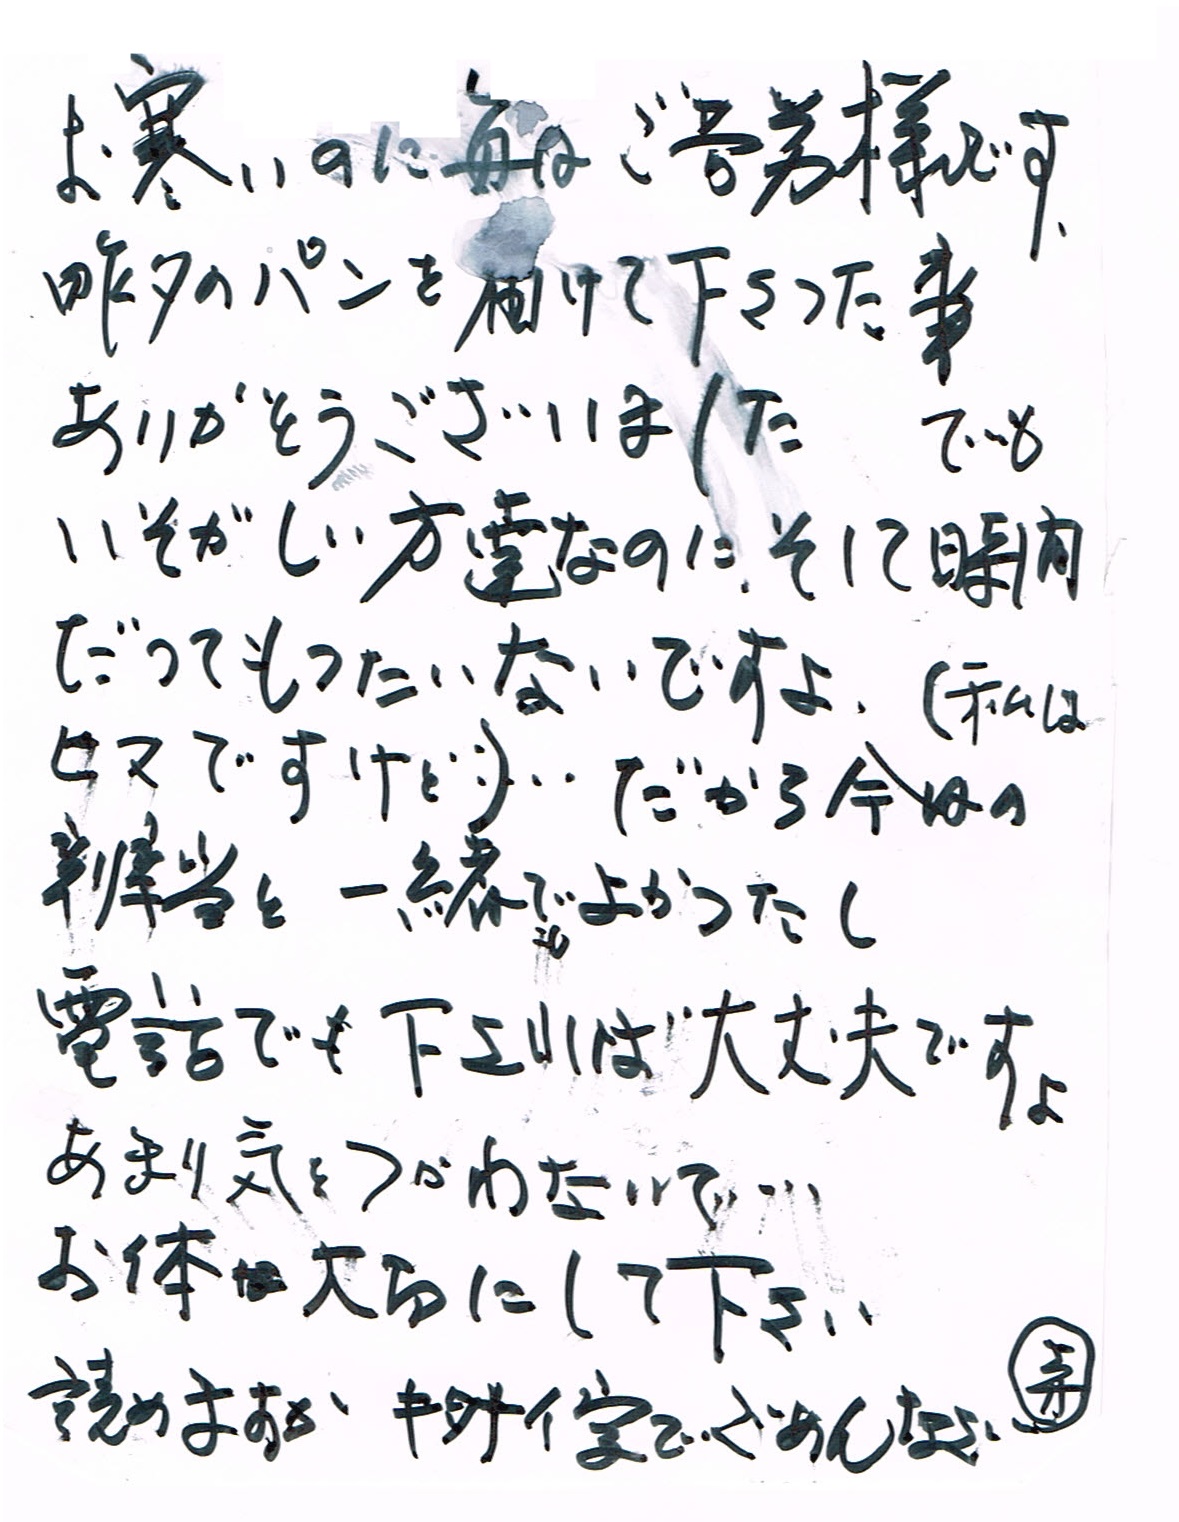 お寒いのに毎日ご苦労様です、
昨夕のパンを届けて下さった事
ありがとうございました でも
いそがしい方達なのに、そして時間
だってもったいないですよ、(私は
ヒマですけど)… だから今日の
お弁当と一緒でよかったし
電話でも下されば大丈夫ですよ
あまり気をつかわないで…
お体を大切にして下さい
読めますか キタナイ字でごめんなさい